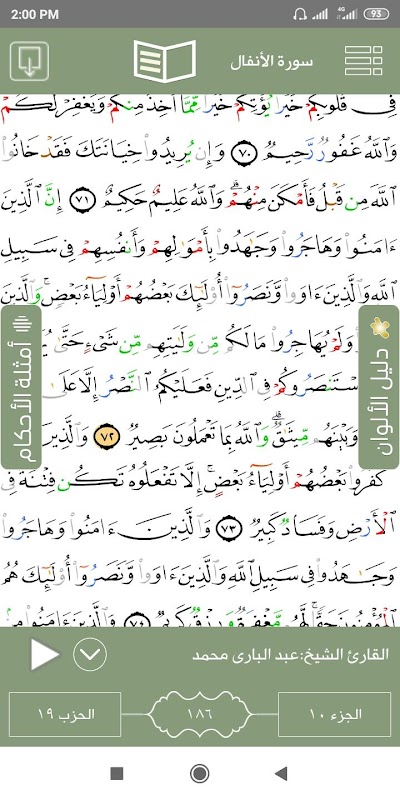 2:00 PM
4G
93
سورة الأنفال
فِى قُلُوبِكُمْ خَيْرًا يُؤْتِكُمْ خَيْرًا مِّمَّآ أُخِذَ مِنكُمْ وَيَغْفِرْ لَكُمْ
وَٱللَّهُ غَفُورٌ رَّحِيمٌ ٧٠ وَإِن يُرِيدُوا۟ خِيَانَتَكَ فَقَدْ خَانُوا۟
ٱللَّهَ مِن قَبْلُ فَأَمْكَنَ مِنْهُمْ ۗ وَٱللَّهُ عَلِيمٌ حَكِيمٌ ٧١ إِنَّ ٱلَّذِينَ
ءَامَنُوا۟ وَهَاجَرُوا۟ وَجَٰهَدُوا۟ بِأَمْوَٰلِهِمْ وَأَنفُسِهِمْ فِى سَبِيلِ
ٱللَّهِ وَٱلَّذِينَ ءَاوَوا۟ وَّنَصَرُوٓا۟ أُو۟لَٰٓئِكَ بَعْضُهُمْ أَوْلِيَآءُ بَعْضٍ ۚ وَٱلَّذِينَ
وَلَمْ يُهَاجِرُوا۟ مَا لَكُم مِّن وَلَٰيَتِهِم مِّن شَىْءٍ حَتَّىٰ
ٱسْتَنصَرُوكُمْ فِى ٱلدِّينِ فَعَلَيْكُمُ ٱلنَّصْرُ إِلَّا عَلَىٰ
وَبَيْنَهُم مِّيثَٰقٌ ۗ وَٱللَّهُ بِمَا تَعْمَلُونَ بَصِيرٌ ٧٢ وَٱلَّذِينَ
كَفَرُوا۟ بَعْضُهُمْ أَوْلِيَآءُ بَعْضٍ ۚ إِلَّا تَفْعَلُوهُ تَكُن فِتْنَةٌ فِى
ٱلْأَرْضِ وَفَسَادٌ كَبِيرٌ ٧٣ وَٱلَّذِينَ ءَامَنُوا۟ وَهَاجَرُوا۟
وَجَٰهَدُوا۟ فِى سَبِيلِ ٱللَّهِ وَٱلَّذِينَ ءَاوَوا۟ وَّنَصَرُوٓا۟ أُو۟لَٰٓئِكَ هُمُ
ٱلْمُؤْمِنُونَ حَقًّا ۚ لَّهُم مَّغْفِرَةٌ وَرِزْقٌ كَرِيمٌ ٧٤ وَٱلَّذِينَ ءَامَنُوا۟ مِنۢ
دليل الألوان
أمثلة الأحكام
القارئ الشيخ:عبد البارى محمد
الجزء ١٠
١٨٦
الحزب ١٩